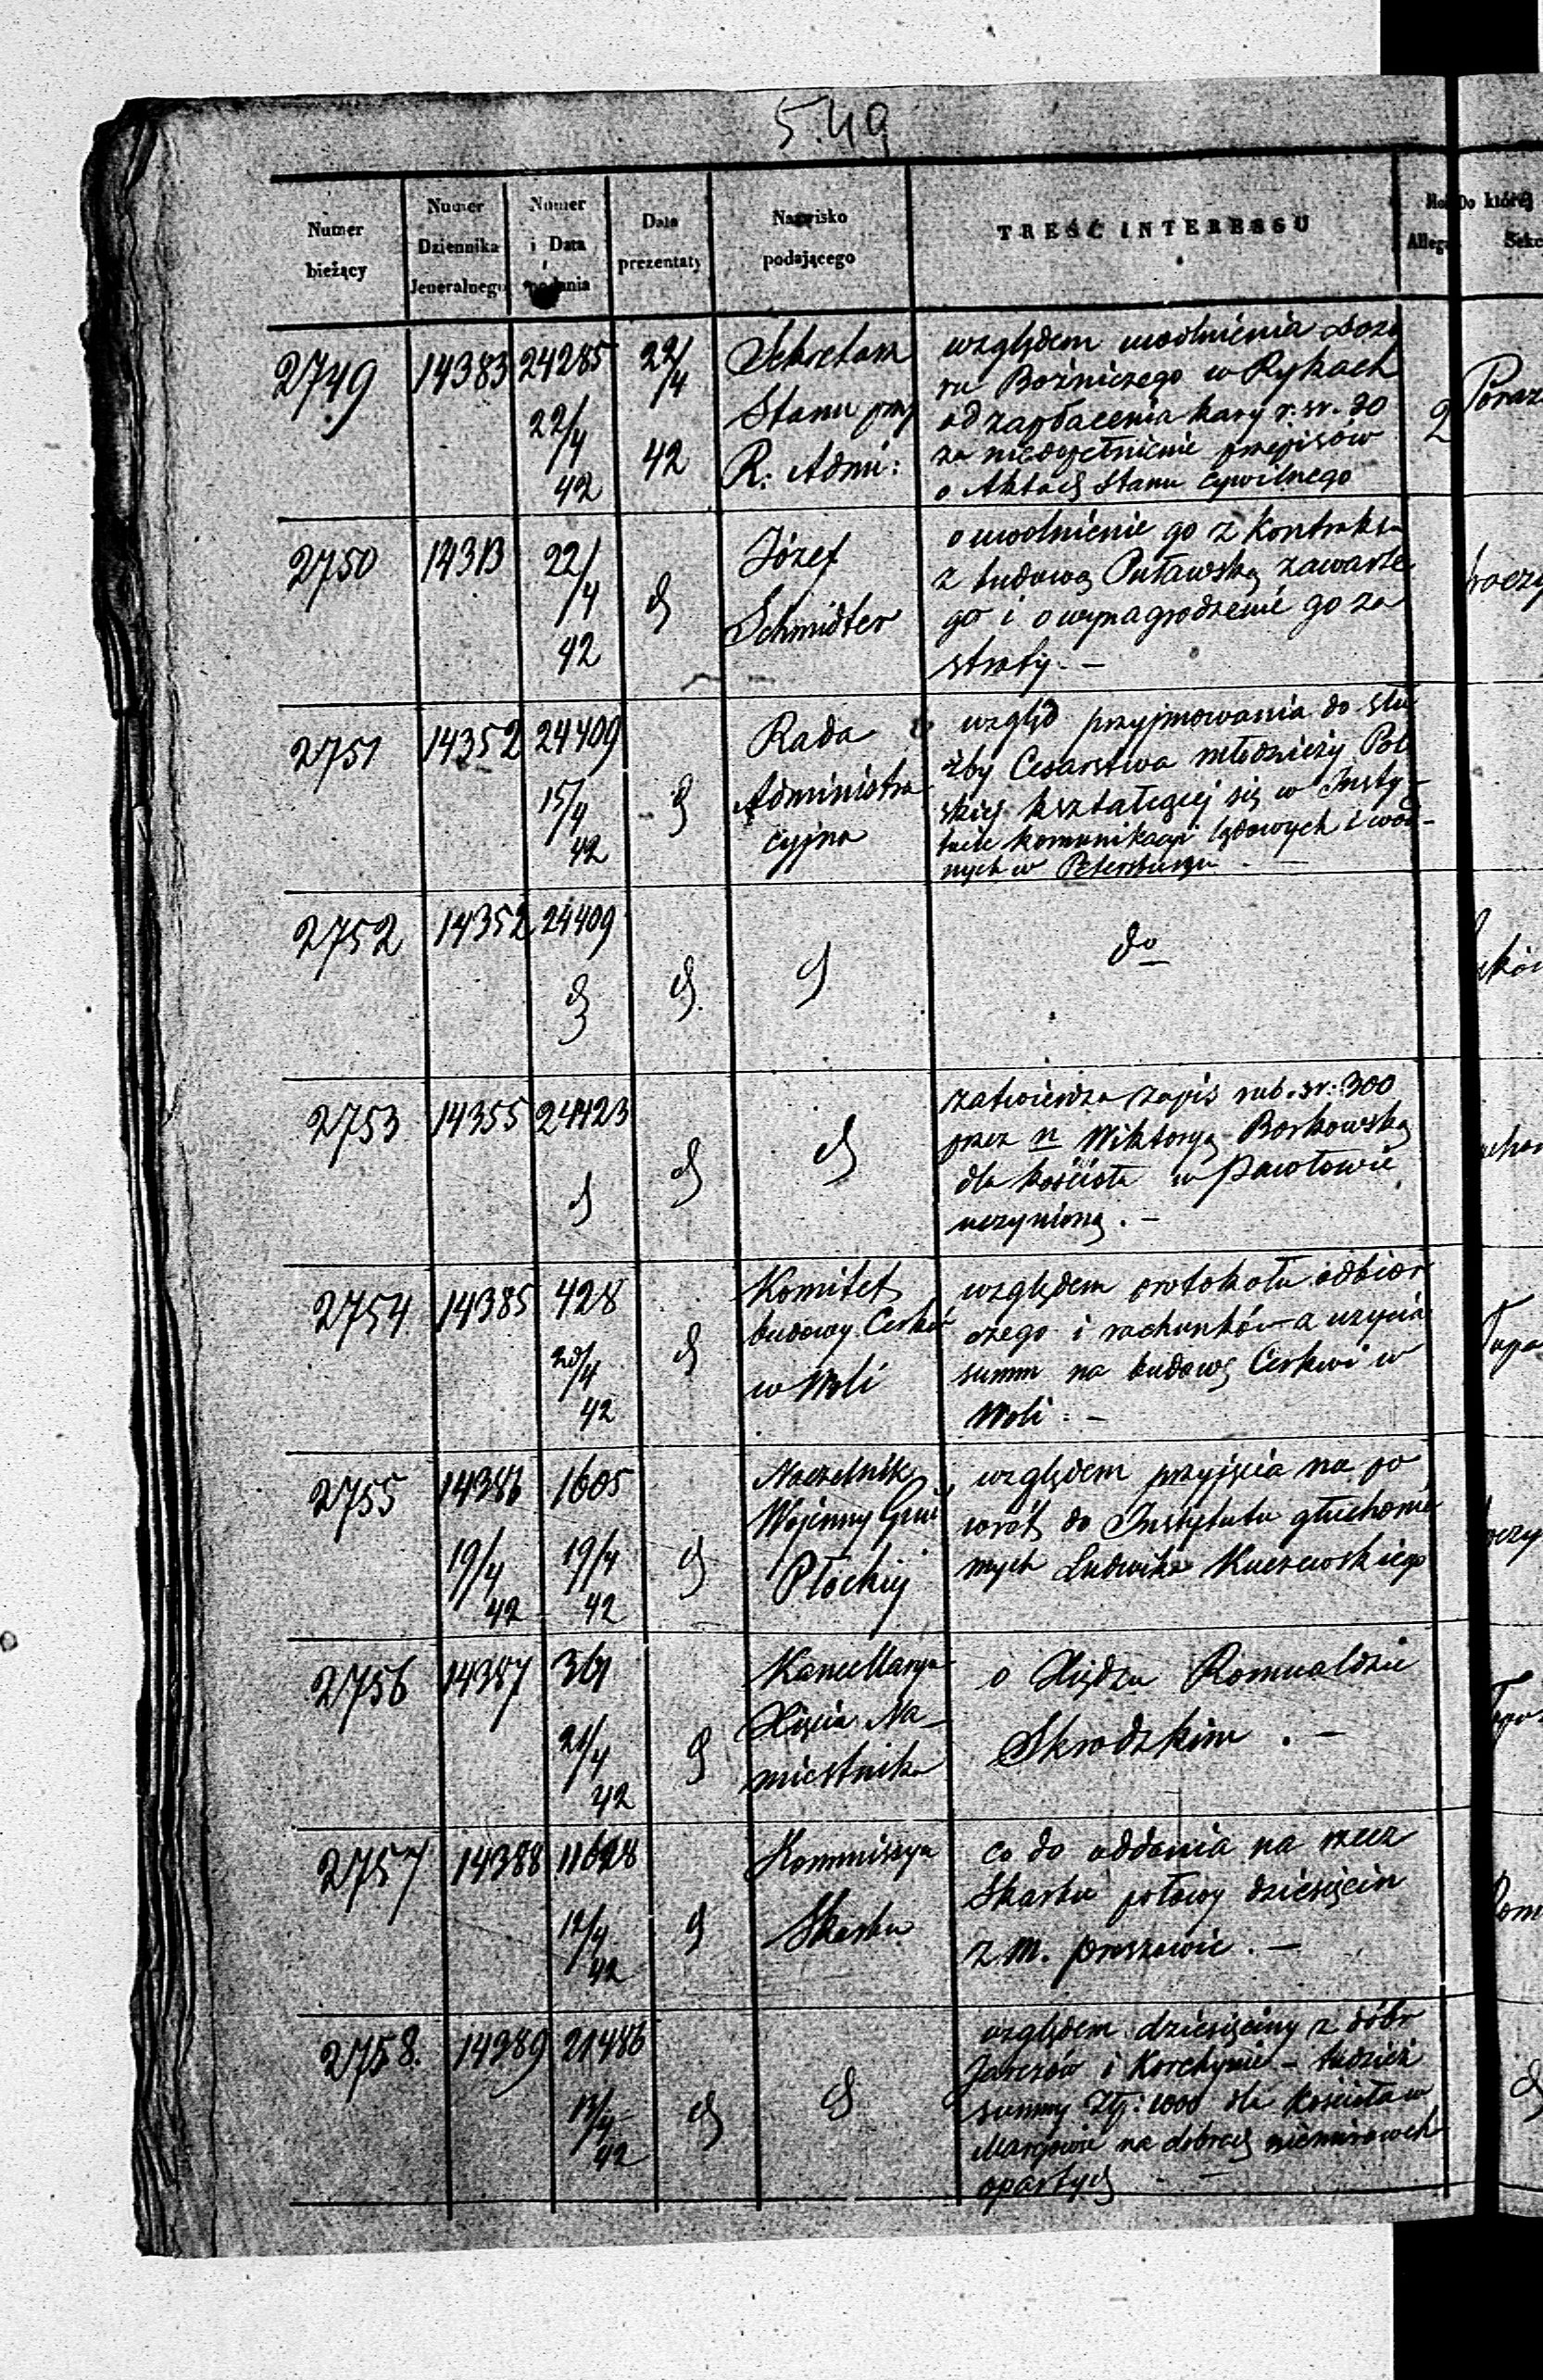 5.49
Numer bieżący | Numer Dziennika Jeneralnego | Numer i Data podania | Data prezentaty | Nazwisko podającego | TREŚĆ INTERESSU | Alleg | Do której Sekc
2749 | 14383 | 24285 22/4 42 | 22/4 42 | Sekretarz
Stanu przy
R: Admi: | względem uwolnienia Dozo
ru Bożniczego w Rykach
od zapłacenia kary r. sr. 30
za niedopełnienie przepisów
o Aktach Stanu Cywilnego | 2
2750 | 14313 | 22/4 42 | d | Józef
Schmidter | o uwolnienie go z kontraktu
z budową Puławską zawarte
go i o wynagrodzenie go za
straty. —
2751 | 14352 | 24409 15/4 42 | d | Rada
Administra
cyjna | względ przyjmowania do słu
żby Cesarstwa młodzieży Pol
skiej kształcącej się w Insty-
tucie komunikacyi lądowych i wod-
nych w Petersburgu. —
2752 | 14352 | 24409 d | d | d | do
2753 | 14355 | 24423 d | d | d | zatwierdza zapis rub. sr: 300
przez n Wiktoryą Borkowską
dla kościoła w Pawłowie
uczyniony. —
2754 | 14385 | 428 20/4 42 | d | Komitet
budowy Cerkwi
w Woli | względem protokołu odbior
czego i rachunków a użycia
summ na budowę Cerkwi w
Woli. —
2755 | 14386 19/4 42 | 1605 19/4 42 | d | Naczelnik
Wojenny Gub
Płockiej | względem przyjęcia na po
wrót do Instytutu głuchonie
mych Ludwika Kuczewskiego
2756 | 14387 | 361 21/4 42 | d | Kancellarya
Xięcia Na-
miestnika | o Xiędzu Romualdzie
Skrodzkim. —
2757 | 14388 | 11628 12/4 42 | d | Kommissya
Skarbu | co do oddania na rzecz
Skarbu połowy dziesięcin
z m. Proszowic. —
2758. | 14389 | 21486 13/4 42 | d | d | względem dziesięciny z dóbr
Jarczów i Korchynie - tudzież
summy Złp: 1000 dla kościoła w
na dobrach
opartych —